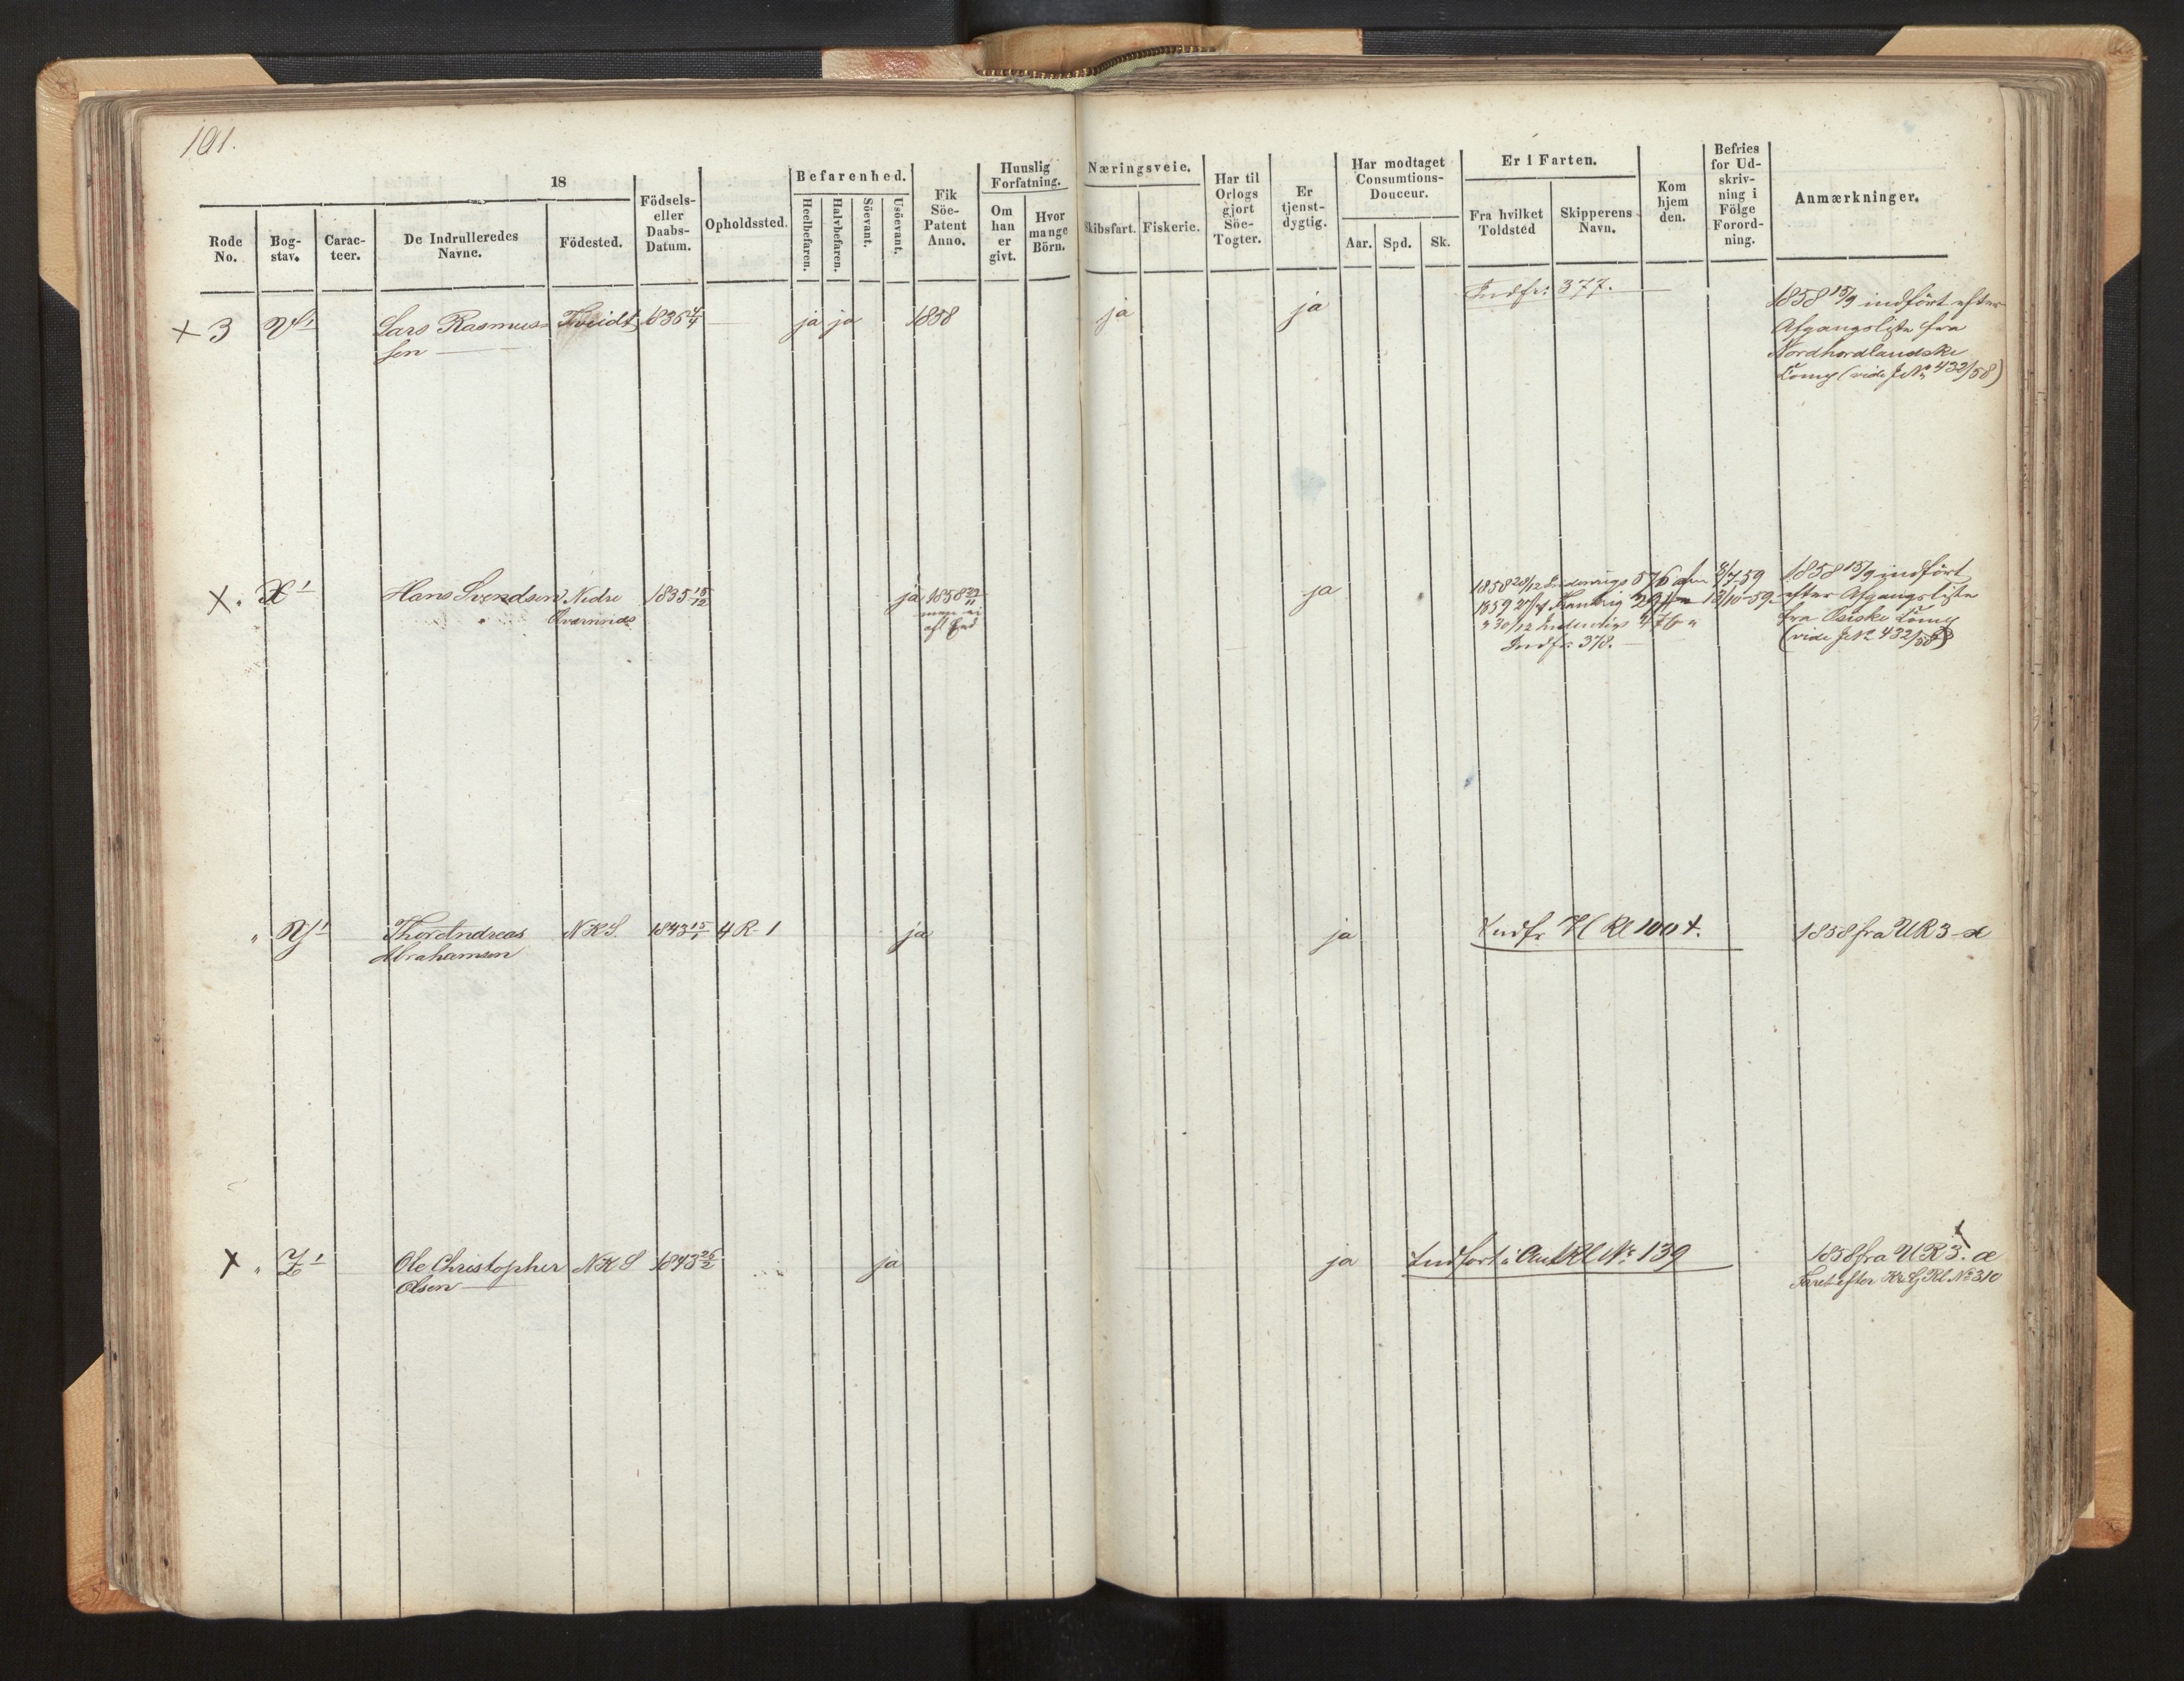 191.
18
Rode No.
Bog-stav.
Carac-teer.
De Indrulleredes Navne.
Födested.
Födsels- eller Daabs-Datum.
Opholdssted.
Befarenhed.
Heelbefaren.
Halvbefaren.
Söevant.
Usöevant.
Fik Söe-Patent Anno.
Huuslig Forfatning.
Om han er givt.
Hvor mange Börn.
Næringsveie.
Skibsfart.
Fiskerie.
Har til Orlogs gjort Söe-Togter.
Er tjenst-dygtig.
Har modtaget Consumtions-Douceur.
Aar.
Spd.
Sk.
Er i Farten.
Fra hvilket Toldsted
Skipperens Navn.
Kom hjem den.
Befries for Ud-skriv-ning i Fölge Forord-ning.
Anmærkninger.
× 3 Lars Rasmus- Tveidt 1836 4/4 ja ja 1858 ja ja Indfr: 377. 1858 15/9 indfört efter
sen Afgangsliste fra
Nordhordlandske
Comp (vide J№ 432/58)
×. X1 Hans Svendsen Nedre 1835 15/12 ja 1858 ja 1858 20/12 Indenrigs 576 3/7-59 1858 15/9 indfört
1859 13/10-59 efter Afgangsliste
men ei
" 30/12 476 " fra Comp
Indfr: 378. (vide J№ 432/58)
" Y1 Thor Andreas N.K.S. 1843 15/1 4 R 1 ja ja Indfr Rl 100 t. 1858 fra UR 3 æ
Abrahamsen
× " Z1 Ole Christopher N K S 1843 26/2 ja ja Indfört i Rl № 139 1858 fra UR 3. æ
Olsen efter Rl № 310